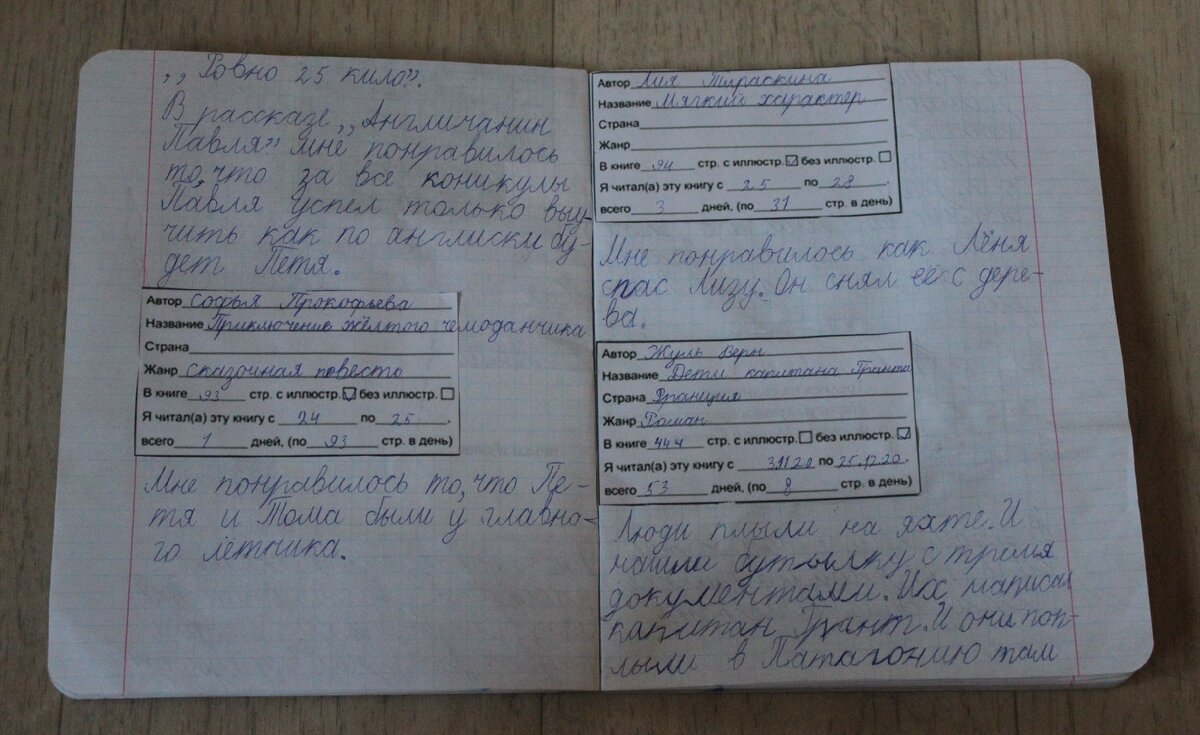 „Ровно 25 кило”.
В рассказе „Англичанин
Павля” мне понравилось
то, что за все коникулы
Павля успел только выу-
чить как по англиски бу-
дет Петя.
Автор Софья Прокофьева
Название Приключение жёлтого чемоданчика
Страна
Жанр сказочная повесто
В книге 93 стр. с иллюстр. без иллюстр.
Я читал(а) эту книгу с 24 по 25.
всего 1 дней, (по 93 стр. в день)
Мне понравилось то, что Пе-
тя и Тома были у главно-
го лётчика.
Автор Лия
Название Мягкий характер
Страна
Жанр
В книге 94 стр. с иллюстр. без иллюстр.
Я читал(а) эту книгу с 25 по 28.
всего 3 дней, (по 31 стр. в день)
Мне понравилось как Лёня
спас Лизу. Он снял её с дере-
ва.
Автор Жуль Верн
Название Дети капитана Гранта
Страна Франция
Жанр Роман
В книге 444 стр. с иллюстр. без иллюстр.
Я читал(а) эту книгу с 3.11.20 по 25.12.20.
всего 53 дней, (по 8 стр. в день)
Люди плыли на яхте. И
нашли бутылку с тремя
документами. Их написал
капитан Грант. И они поп-
лыли в Патагонию там